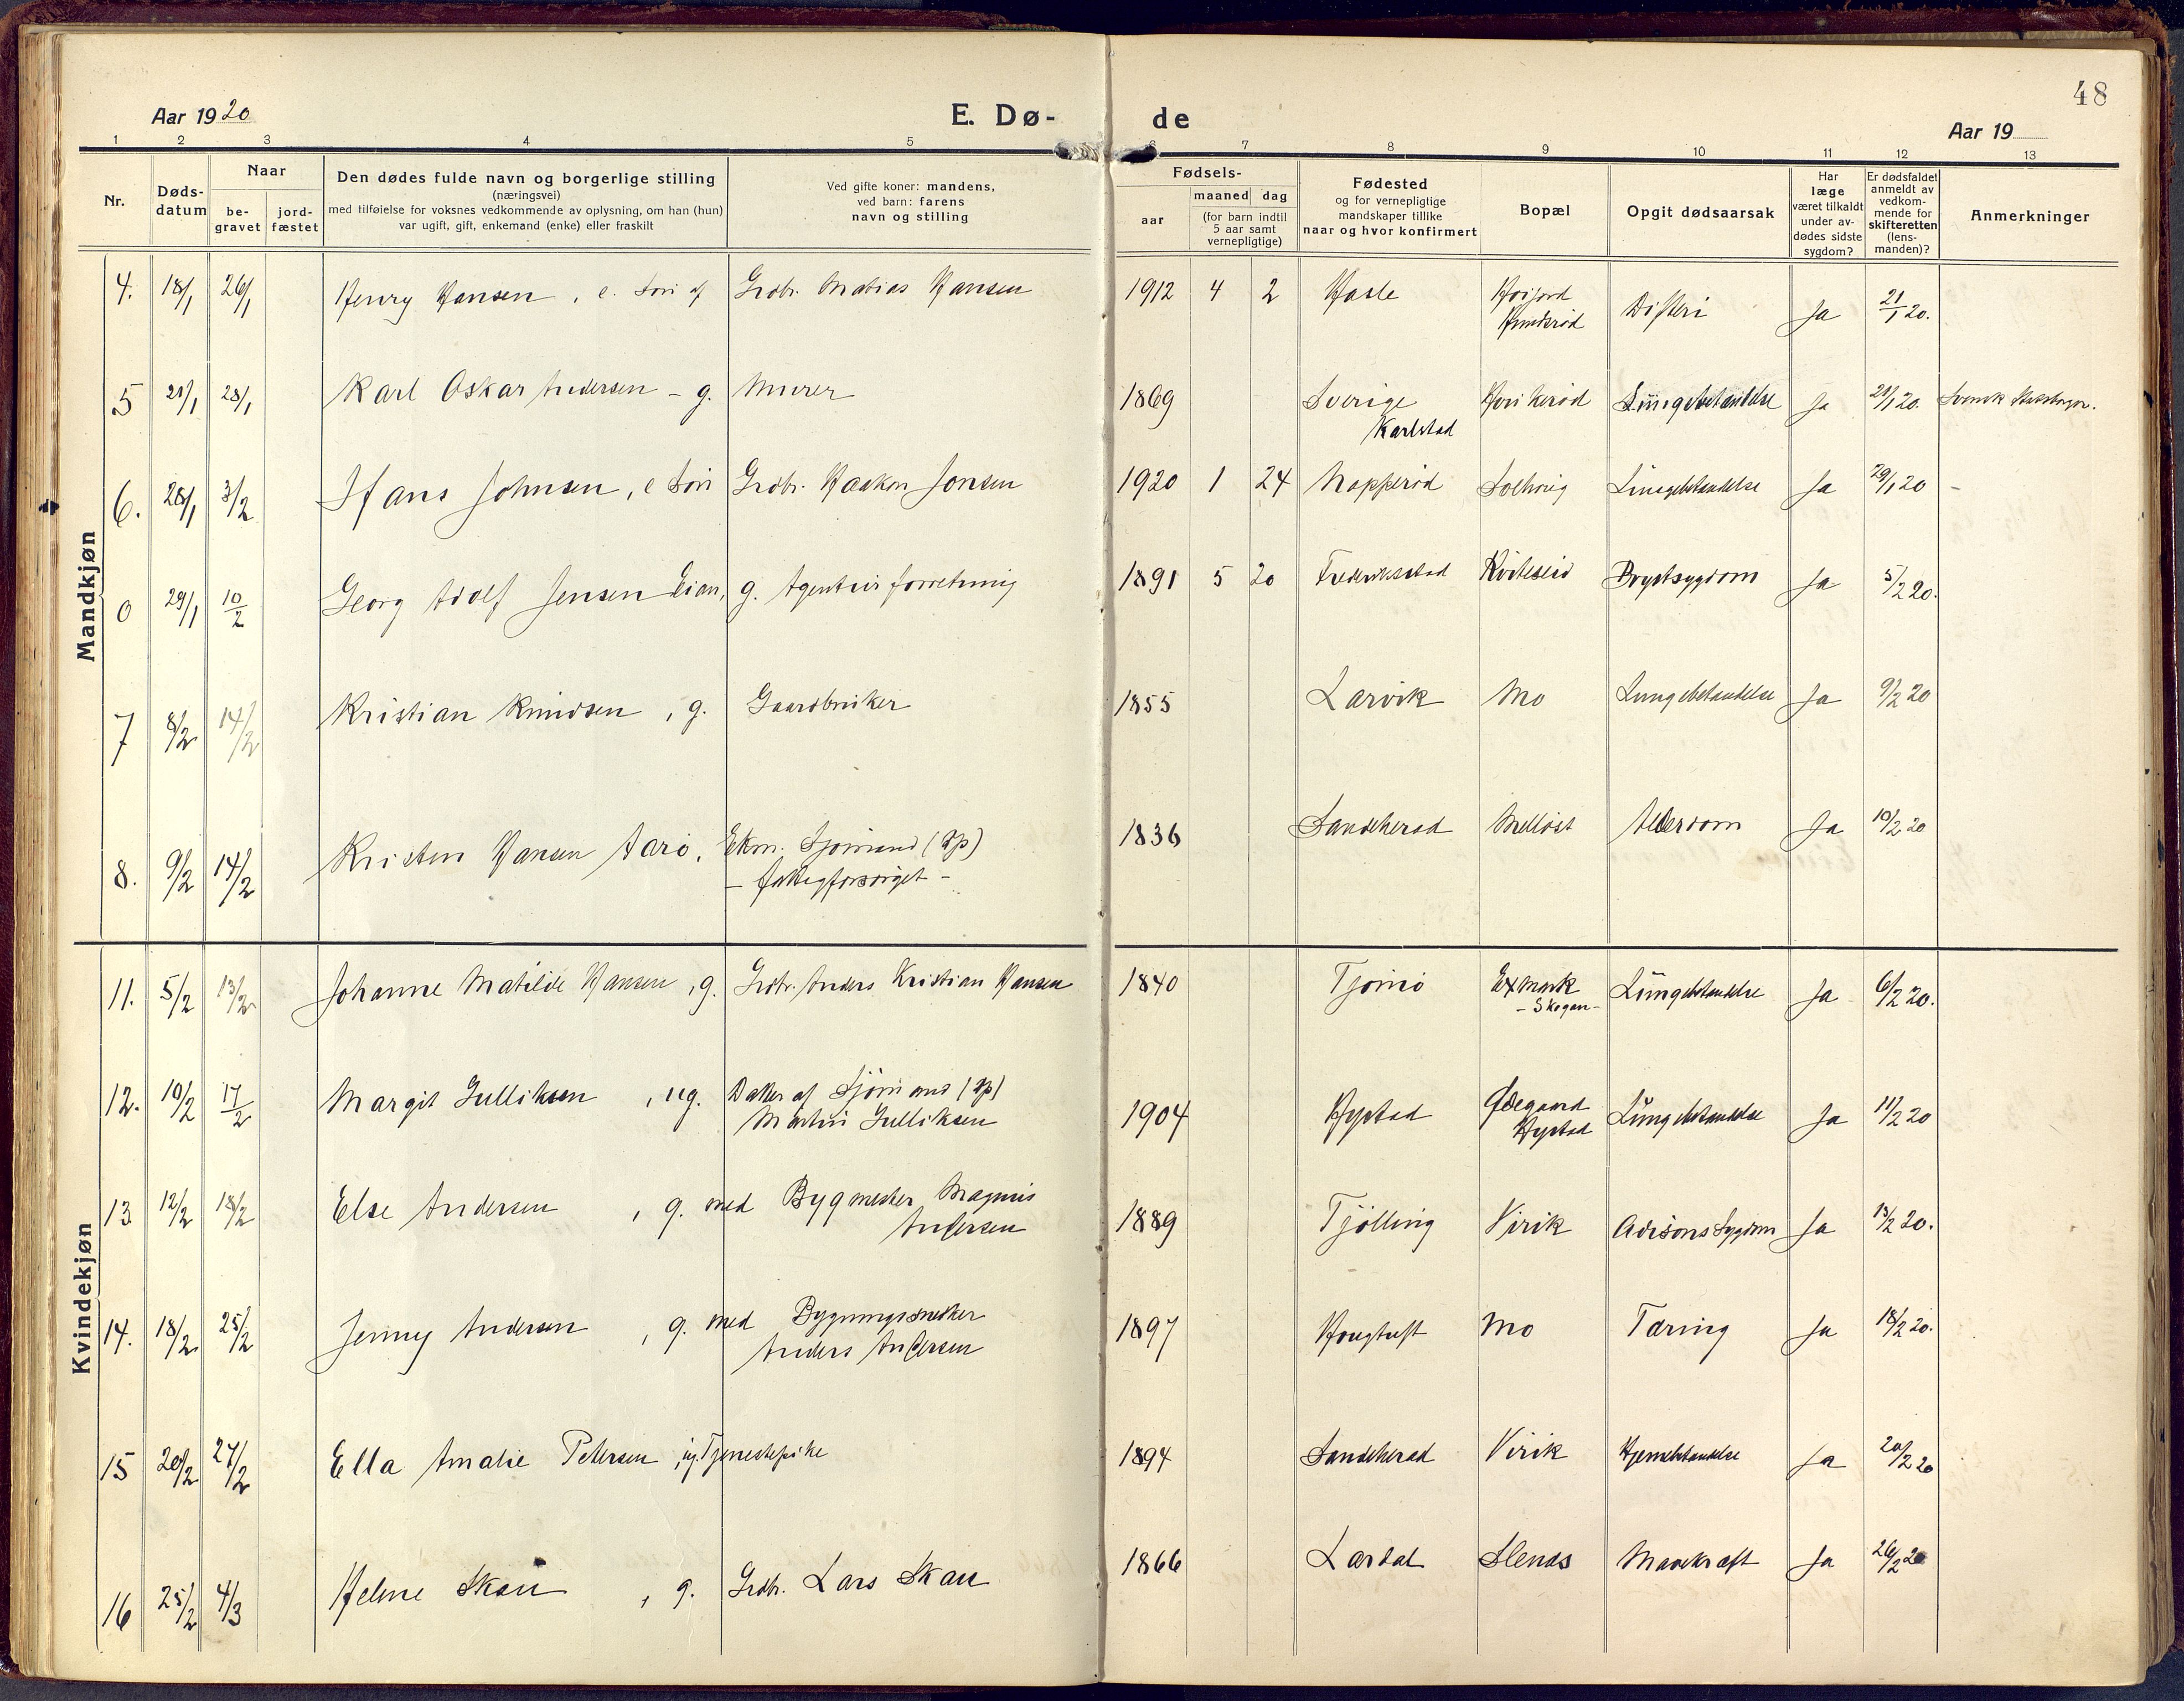 48
Aar 1920
E. Dø- de
Aar 19
1 2 3 4 5 6 7 8 9 10 11 12 13
Nr.
Døds-
datum
Naar
be-
gravet
jord-
fæstet
Den dødes fulde navn og borgerlige stilling
(næringsvei)
med tilføielse for voksnes vedkommende av oplysning, om han (hun)
var ugift, gift, enkemand (enke) eller fraskilt
Ved gifte koner: mandens,
ved barn: farens
navn og stilling
Fødsels-
aar
maaned dag
(for barn indtil
5 aar samt
vernepligtige)
Fødested
og for vernepligtige
mandskaper tillike
naar og hvor konfirmert
Bopæl
Opgit dødsaarsak
Har
læge
været tilkaldt
under av-
dødes sidste
sygdom?
Er dødsfaldet
anmeldt av
vedkom-
mende for
skifteretten
(lens-
manden)?
Anmerkninger
Mandkjøn
4. 18/1 26/1 Henry Hansen, e. Søn af Grdbr. Matias Hansen 1912 4 2 Hasle Difteri Ja 21/1 20.
5 21/1 28/1 Karl Oskar Andersen - g. Murer 1869 Sverige Lungebetændelse Ja 21/1 20. Svensk Statsborger.
Karlstad
6. 28/1 3/2 Hans Johnsen, e Søn Grdbr. Haakon Jonsen 1920 1 24 Napperød Solhaug Lungebetændelse Ja 29/1 20 -
0 29/1 10/2 Georg Adolf Jensen Eian, g. Agenturforretning 1891 5 20 Frederiksstad Kviteseid Brystsygdom Ja 5/2 20.
7 8/2 14/2 Kristian Knudsen, g. Gaardbruker 1855 Larvik Mo Lungebetændelse Ja 9/2 20
8. 9/2 14/2 Kristen Hansen Aarø, Ekm. Sjømand 1836 Sandeherad Melløst Alderdom Ja 10/2 20
- fattigforsørget -
Kvindekjøn
11. 5/2 13/2 Johanne Matilde Hansen, g. Grdbr. Anders Kristian Hansen 1840 Tjømø Exmark Lungebetændelse Ja 6/2 20.
- Skogan -
12. 10/2 17/2 Margit Gulliksen, ug. Datter af Sjømand 1904 Hystad Ødegaard Lungebetændelse Ja 11/2 20
Martin Gulliksen Hystad
13 12/2 18/2 Else Andersen, g. med Bygmester Magnus 1889 Tjølling Virik Adisons Sygdom Ja 13/2 20.
Andersen
14. 18/2 25/2 Jenny Andersen, g. med Bygningssnekker 1897 Haugtuft Mo Tæring Ja 18/2 20.
Anders Andersen
15 20/2 27/2 Ella Amalie Petersen, ug. Tjenestepike 1894 Sandeherad Virik Hjernebetændelse Ja 20/2 20
16 25/2 4/3 Helene Skau, g. Grdbr. Lars Skau 1866 Lardal Slenas Mavekræft Ja 26/2 20